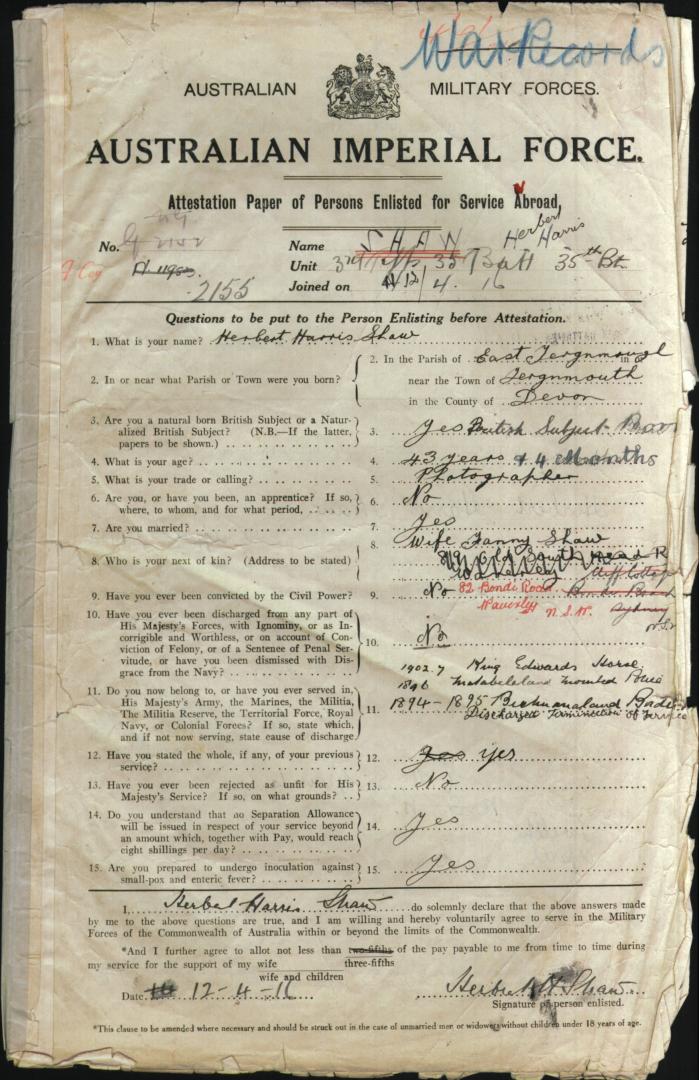 War Records
AUSTRALIAN MILITARY FORCES.
AUSTRALIAN IMPERIAL FORCE.
Attestation Paper of Persons Enlisted for Service Abroad,
No. 2155
Name SHAW Herbert Harris
Unit 35 Batt 35th Bt
Joined on 12/4.16
Questions to be put to the Person Enlisting before Attestation.
1. What is your name? Herbert Harris Shaw
2. In or near what Parish or Town were you born?
2. In the Parish of East Teignmouth in
near the Town of Teignmouth
in the County of Devon
3. Are you a natural born British Subject or a Natur-
alized British Subject? (N.B.—If the latter,
papers to be shown.)
3. Yes British Subject Born
4. What is your age?
4. 43 years & 4 Months
5. What is your trade or calling?
5. Photographer
6. Are you, or have you been, an apprentice? If so,
where, to whom, and for what period,
6. No
7. Are you married?
7. Yes
8. Who is your next of kin? (Address to be stated)
8. Wife Fanny Shaw
Old South Head R
Cliff Cottage
Bondi Beach
Sydney
N.S.W
82 Bondi Road
Waverley N.S.W.
9. Have you ever been convicted by the Civil Power?
9. No
10. Have you ever been discharged from any part of
His Majesty's Forces, with Ignominy, or as In-
corrigible and Worthless, or on account of Con-
viction of Felony, or of a Sentence of Penal Ser-
vitude, or have you been dismissed with Dis-
grace from the Navy?
10. No
11. Do you now belong to, or have you ever served in,
His Majesty's Army, the Marines, the Militia,
The Militia Reserve, the Territorial Force, Royal
Navy, or Colonial Forces? If so, state which,
and if not now serving, state cause of discharge
11. 1902.7 King Edwards Horse
1896 Matabeleland Mounted Police
1894-1895 Bechuanaland
Discharged Termination of Service
12. Have you stated the whole, if any, of your previous
service?
12. Yes yes
13. Have you ever been rejected as unfit for His
Majesty's Service? If so, on what grounds?
13. No
14. Do you understand that no Separation Allowance
will be issued in respect of your service beyond
an amount which, together with Pay, would reach
eight shillings per day?
14. Yes
15. Are you prepared to undergo inoculation against
small-pox and enteric fever?
15. Yes
I, Herbert Harris Shaw do solemnly declare that the above answers made
by me to the above questions are true, and I am willing and hereby voluntarily agree to serve in the Military
Forces of the Commonwealth of Australia within or beyond the limits of the Commonwealth.
*And I further agree to allot not less than two-fifths of the pay payable to me from time to time during
three-fifths
my service for the support of my wife
wife and children
Date 12-4-16
Herbert H Shaw
Signature of person enlisted.
*This clause to be amended where necessary and should be struck out in the case of unmarried men or widowers without children under 18 years of age.